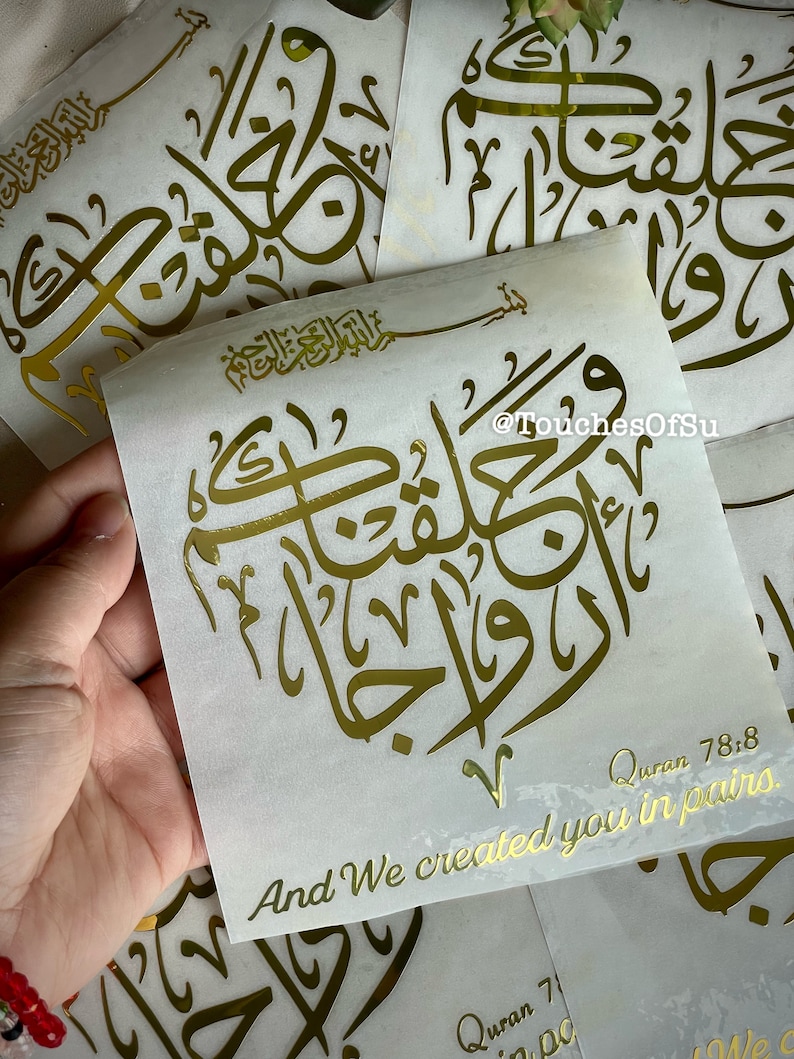 بسم الله الرحمن الرحيم
وخلقناكم
أزواجا
@TouchesOfSu
Quran 78:8
And We created you in pairs.
بسم الله الرحمن الرحيم
وخلقناكم
خلقناكم
Quran 78
in po
And We c